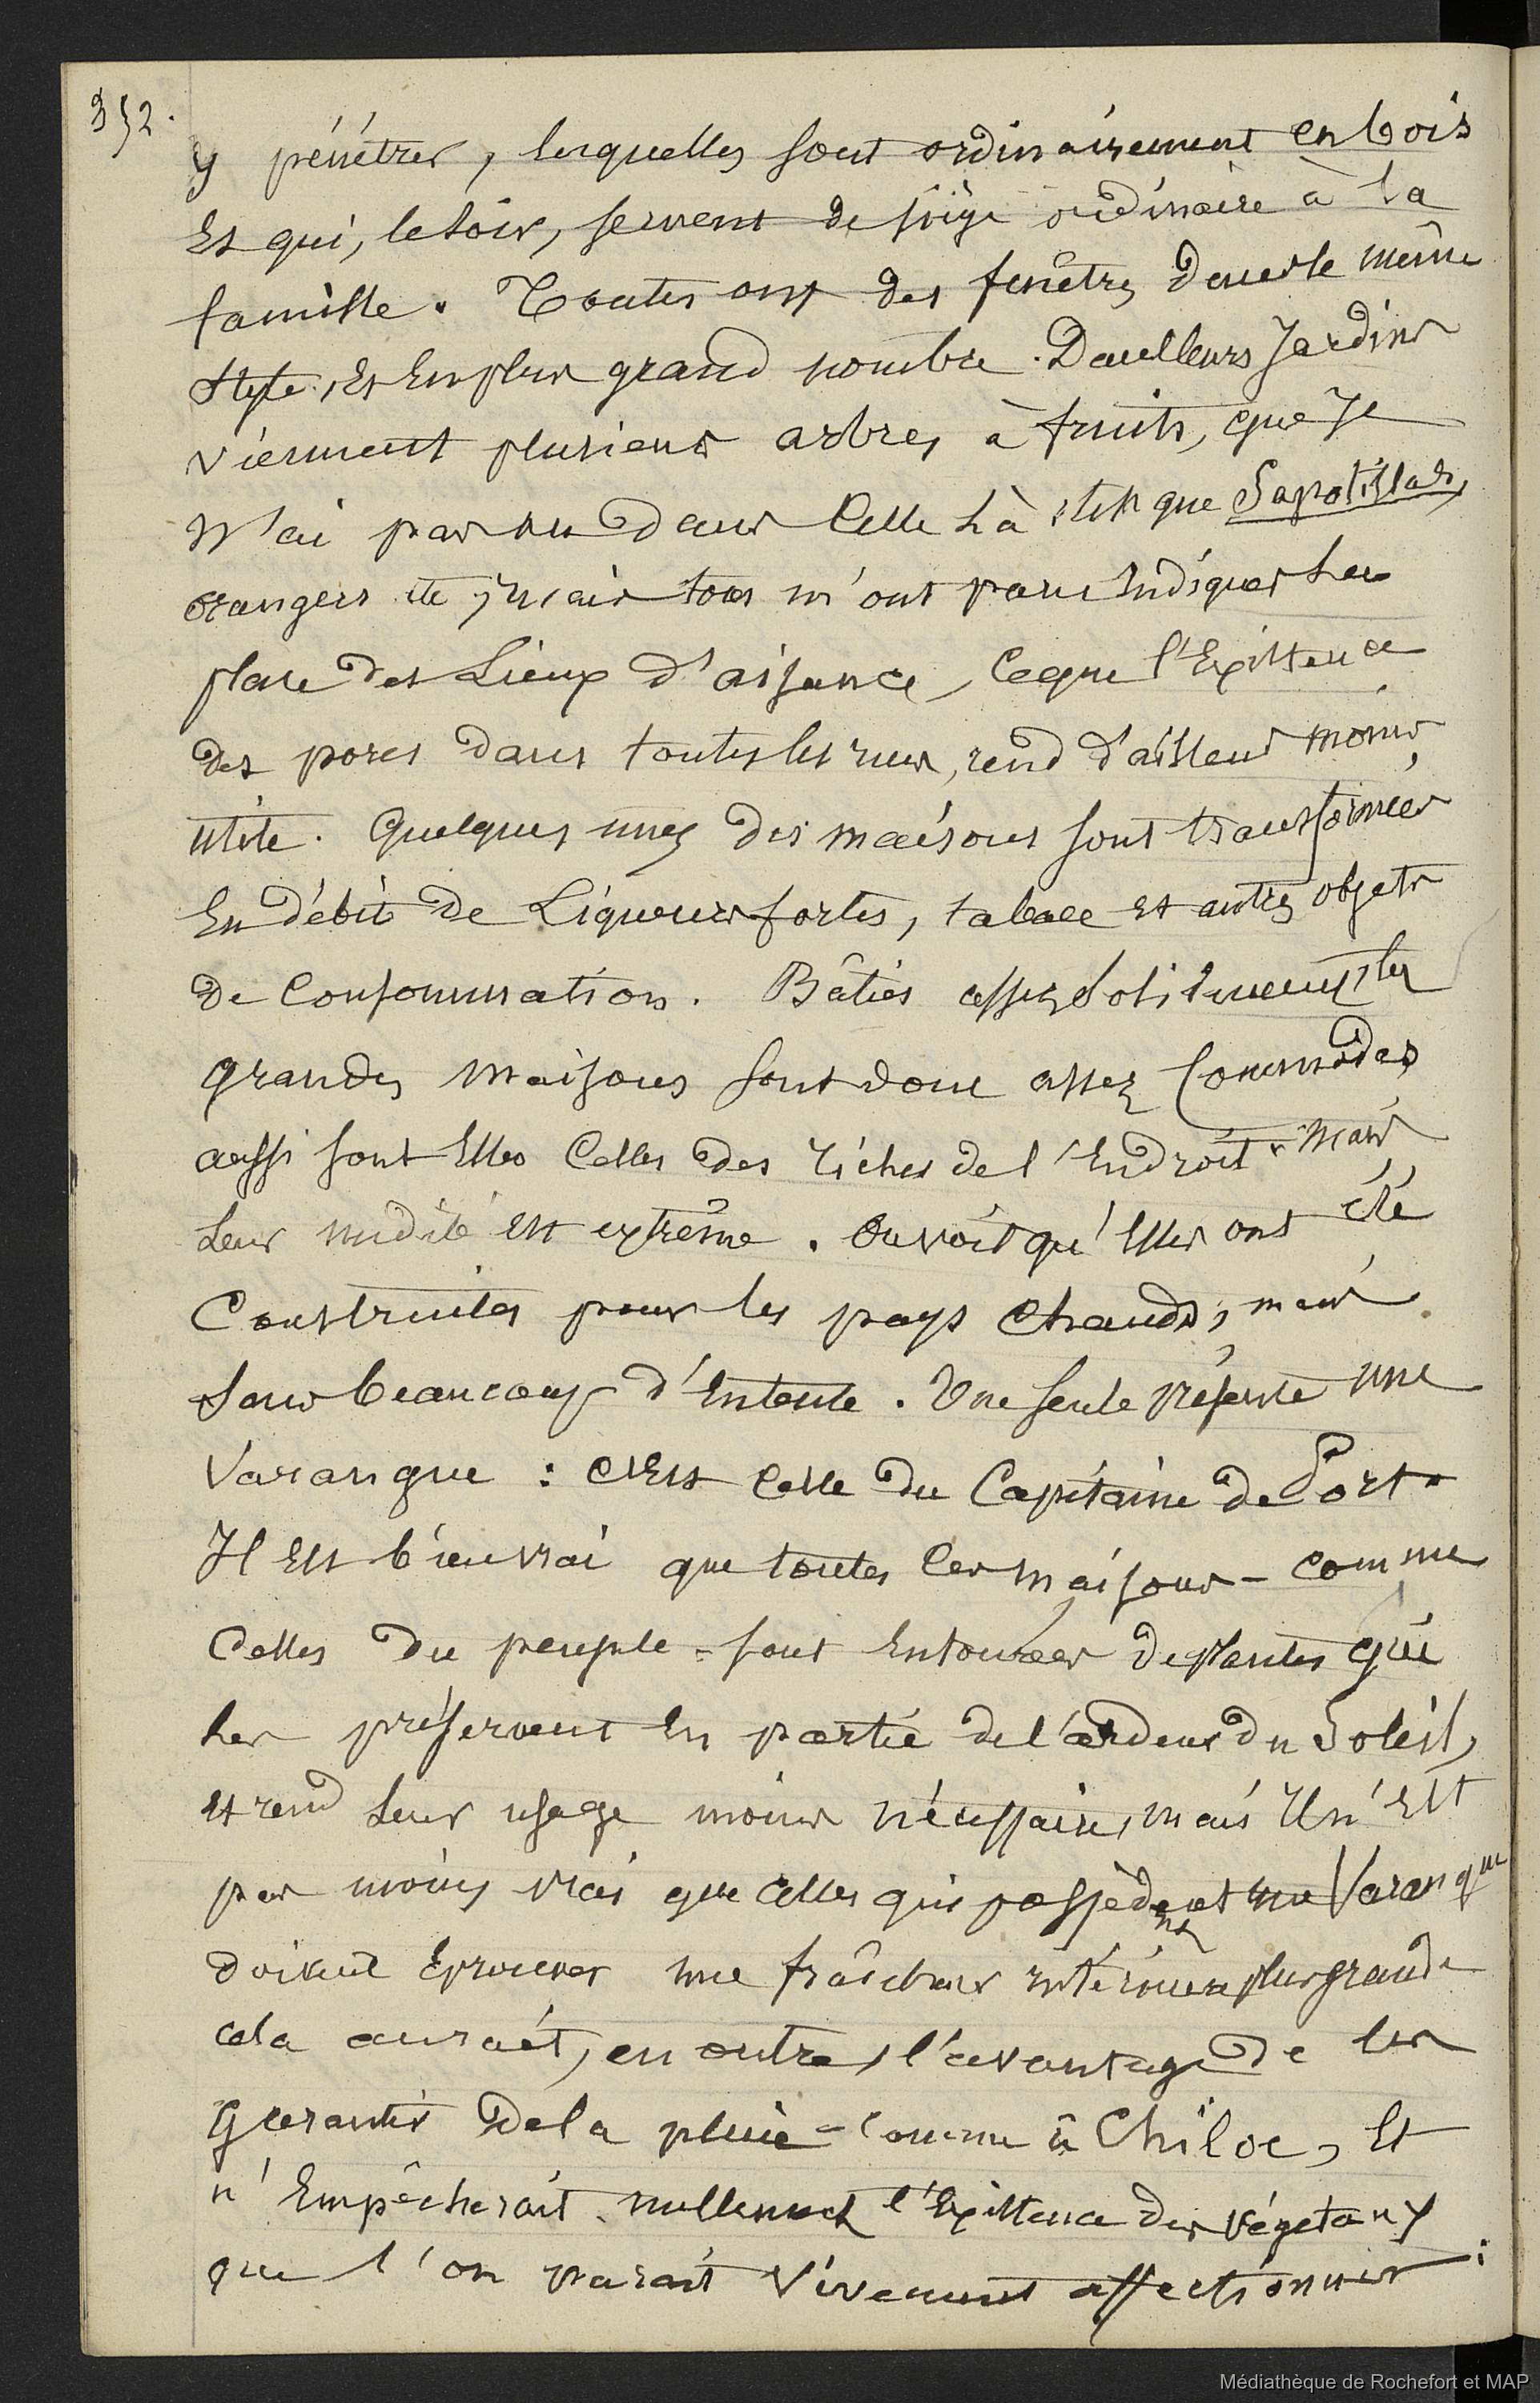 352.
y pénétrer, lesquelles sont ordinairement en bois
Et qui, le soir, servent de siège ordinaire à la
famille. Toutes ont des fenêtres dans le même
style, Et En plus grand nombre. Dans leurs Jardins
viennent plusieurs arbres à fruits, que Je
N'ai pas vu dans Celle là, tels que Sapotillas,
orangers etc; mais tous m'ont paru Indiquer leur
place des Lieux d'aisance, Ceque l'Existence
des porcs dans toutes les rues, rend d'ailleurs moins
utile. Quelques unes des maisons sont transformées
En débit de Liqueurs fortes, tabacs et autres objets
de Consommation. Bâties assez Solidement, les
grandes maisons sont donc assez Commodes
aussi sont Elles Celles des riches de l'Endroit. Mais
Leur nudité est extrême. On voit qu'Elles ont été
Construites pour les pays Chauds, mais
Sans beaucoup d'Entente. Une seule présente une
Varangue : C'Est Celle du Capitaine de Port.
Il Est bien vrai que toutes Ces maisons - comme
Celles du peuple - sont Entourées de plantes qui
les préservent En partie de l'ardeur du Soleil,
et rend Leur usage moins nécessaire, mais Il n'Est
pas moins vrai que Celles qui possèdent une Varangue
doivent Eprouver une fraîcheur intérieure plus grande
cela aurait, en outre, l'avantage de les
Garantir de la pluie - Comme à Chiloe, Et
n'Empêcherait nullement l'Existence des végétaux
que l'on parait vivement affectionner :
Médiathèque de Rochefort et MAP